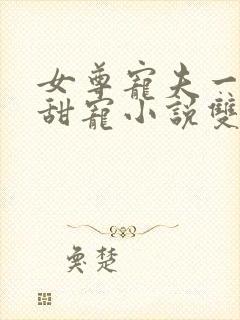 女尊寵夫一
甜寵小說雙
奐楚